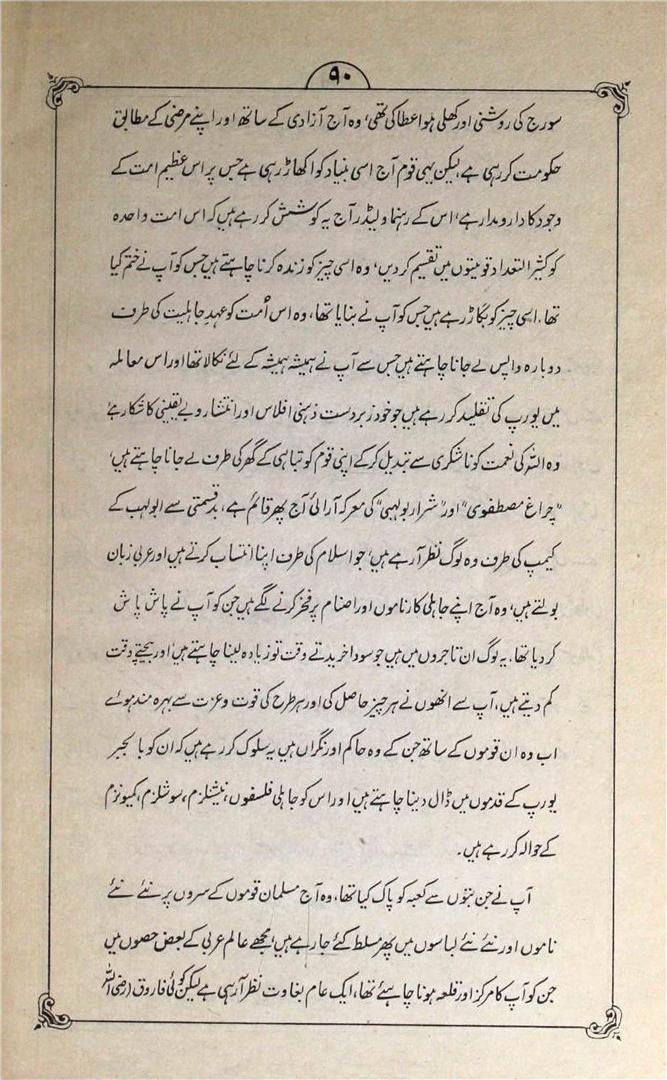 ۹۰
سورج کی روشنی اور کھلی ہوا عطا کی تھی، وہ آج آزادی کے ساتھ اور اپنے مرضی کے مطابق
حکومت کر رہی ہے، لیکن یہی قوم آج اسی بنیاد کو اکھاڑ رہی ہے جس پر اس عظیم امت کے
وجود کا دارومدار ہے، اس کے رہنما و لیڈر آج یہ کوشش کر رہے ہیں کہ اس امت واحدہ
کو کثیر التعداد قومیتوں میں تقسیم کر دیں، وہ اسی چیز کو زندہ کرنا چاہتے ہیں جس کو آپ نے ختم کیا
تھا۔ اسی چیز کو بگاڑ رہے ہیں جس کو آپ نے بنایا تھا، وہ اس اُمت کو عہدِ جاہلیت کی طرف
دوبارہ واپس لے جانا چاہتے ہیں جس سے آپ نے ہمیشہ ہمیشہ کے لئے نکالا تھا اور اس معاملہ
میں یورپ کی تقلید کر رہے ہیں جو خود زبردست ذہنی افلاس اور انتشار و بے یقینی کا شکار ہے
وہ اللہ کی نعمت کو ناشکری سے تبدیل کر کے اپنی قوم کو تباہی کے گھر کی طرف لے جانا چاہتے ہیں،
"چراغ مصطفوی" اور "شرار بولہبی" کی معرکہ آرائی آج پھر قائم ہے، بدقسمتی سے ابولہب کے
کیمپ کی طرف وہ لوگ نظر آ رہے ہیں، جو اسلام کی طرف اپنا انتساب کرتے ہیں اور عربی زبان
بولتے ہیں، وہ آج اپنے جاہلی کارناموں اور اصنام پر فخر کرنے لگے ہیں جن کو آپ نے پاش پاش
کر دیا تھا۔ یہ لوگ ان تاجروں میں ہیں جو سودا خریدتے وقت تو زیادہ لینا چاہتے ہیں اور بیچتے وقت
کم دیتے ہیں، آپ سے انھوں نے ہر چیز حاصل کی اور ہر طرح کی قوت و عزت سے بہرہ مند ہوئے
اب وہ ان قوموں کے ساتھ جن کے وہ حاکم اور نگراں ہیں یہ سلوک کر رہے ہیں کہ ان کو بالجبر
یورپ کے قدموں میں ڈال دینا چاہتے ہیں اور اس کو جاہلی فلسفوں، نیشنلزم، سوشلزم، کمیونزم
کے حوالہ کر رہے ہیں۔
آپ نے جن بتوں سے کعبہ کو پاک کیا تھا، وہ آج مسلمان قوموں کے سروں پر نئے نئے
ناموں اور نئے نئے لباسوں میں پھر مسلط کئے جا رہے ہیں، مجھے عالم عربی کے بعض حصوں میں
جن کو آپ کا مرکز اور قلعہ ہونا چاہئے تھا، ایک عام بغاوت نظر آ رہی ہے لیکن کوئی فاروق (رضی اللہ